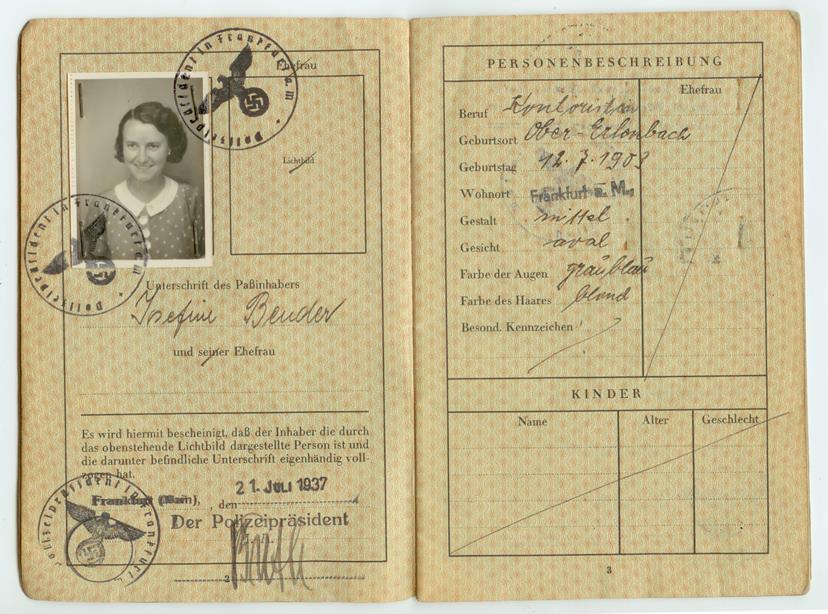 Polizeipräsident in Frankfurt a. M
Ehefrau
Lichtbild
Polizeipräsident in Frankfurt a. M
Unterschrift des Paßinhabers
Josefine Bender
und seiner Ehefrau
Es wird hiermit bescheinigt, daß der Inhaber die durch
das obenstehende Lichtbild dargestellte Person ist und
die darunter befindliche Unterschrift eigenhändig voll-
zogen hat.
Frankfurt (Main), den 21. JULI 1937
Der Polizeipräsident
Polizeipräsident in Frankfurt
2
PERSONENBESCHREIBUNG
Ehefrau
Beruf Kontoristin
Geburtsort Ober-Erlenbach
Geburtstag 12. 7. 1903
Wohnort Frankfurt a. M.,
Gestalt mittel
Gesicht oval
Farbe der Augen graublau
Farbe des Haares blond
Besond. Kennzeichen
KINDER
Name Alter Geschlecht
3